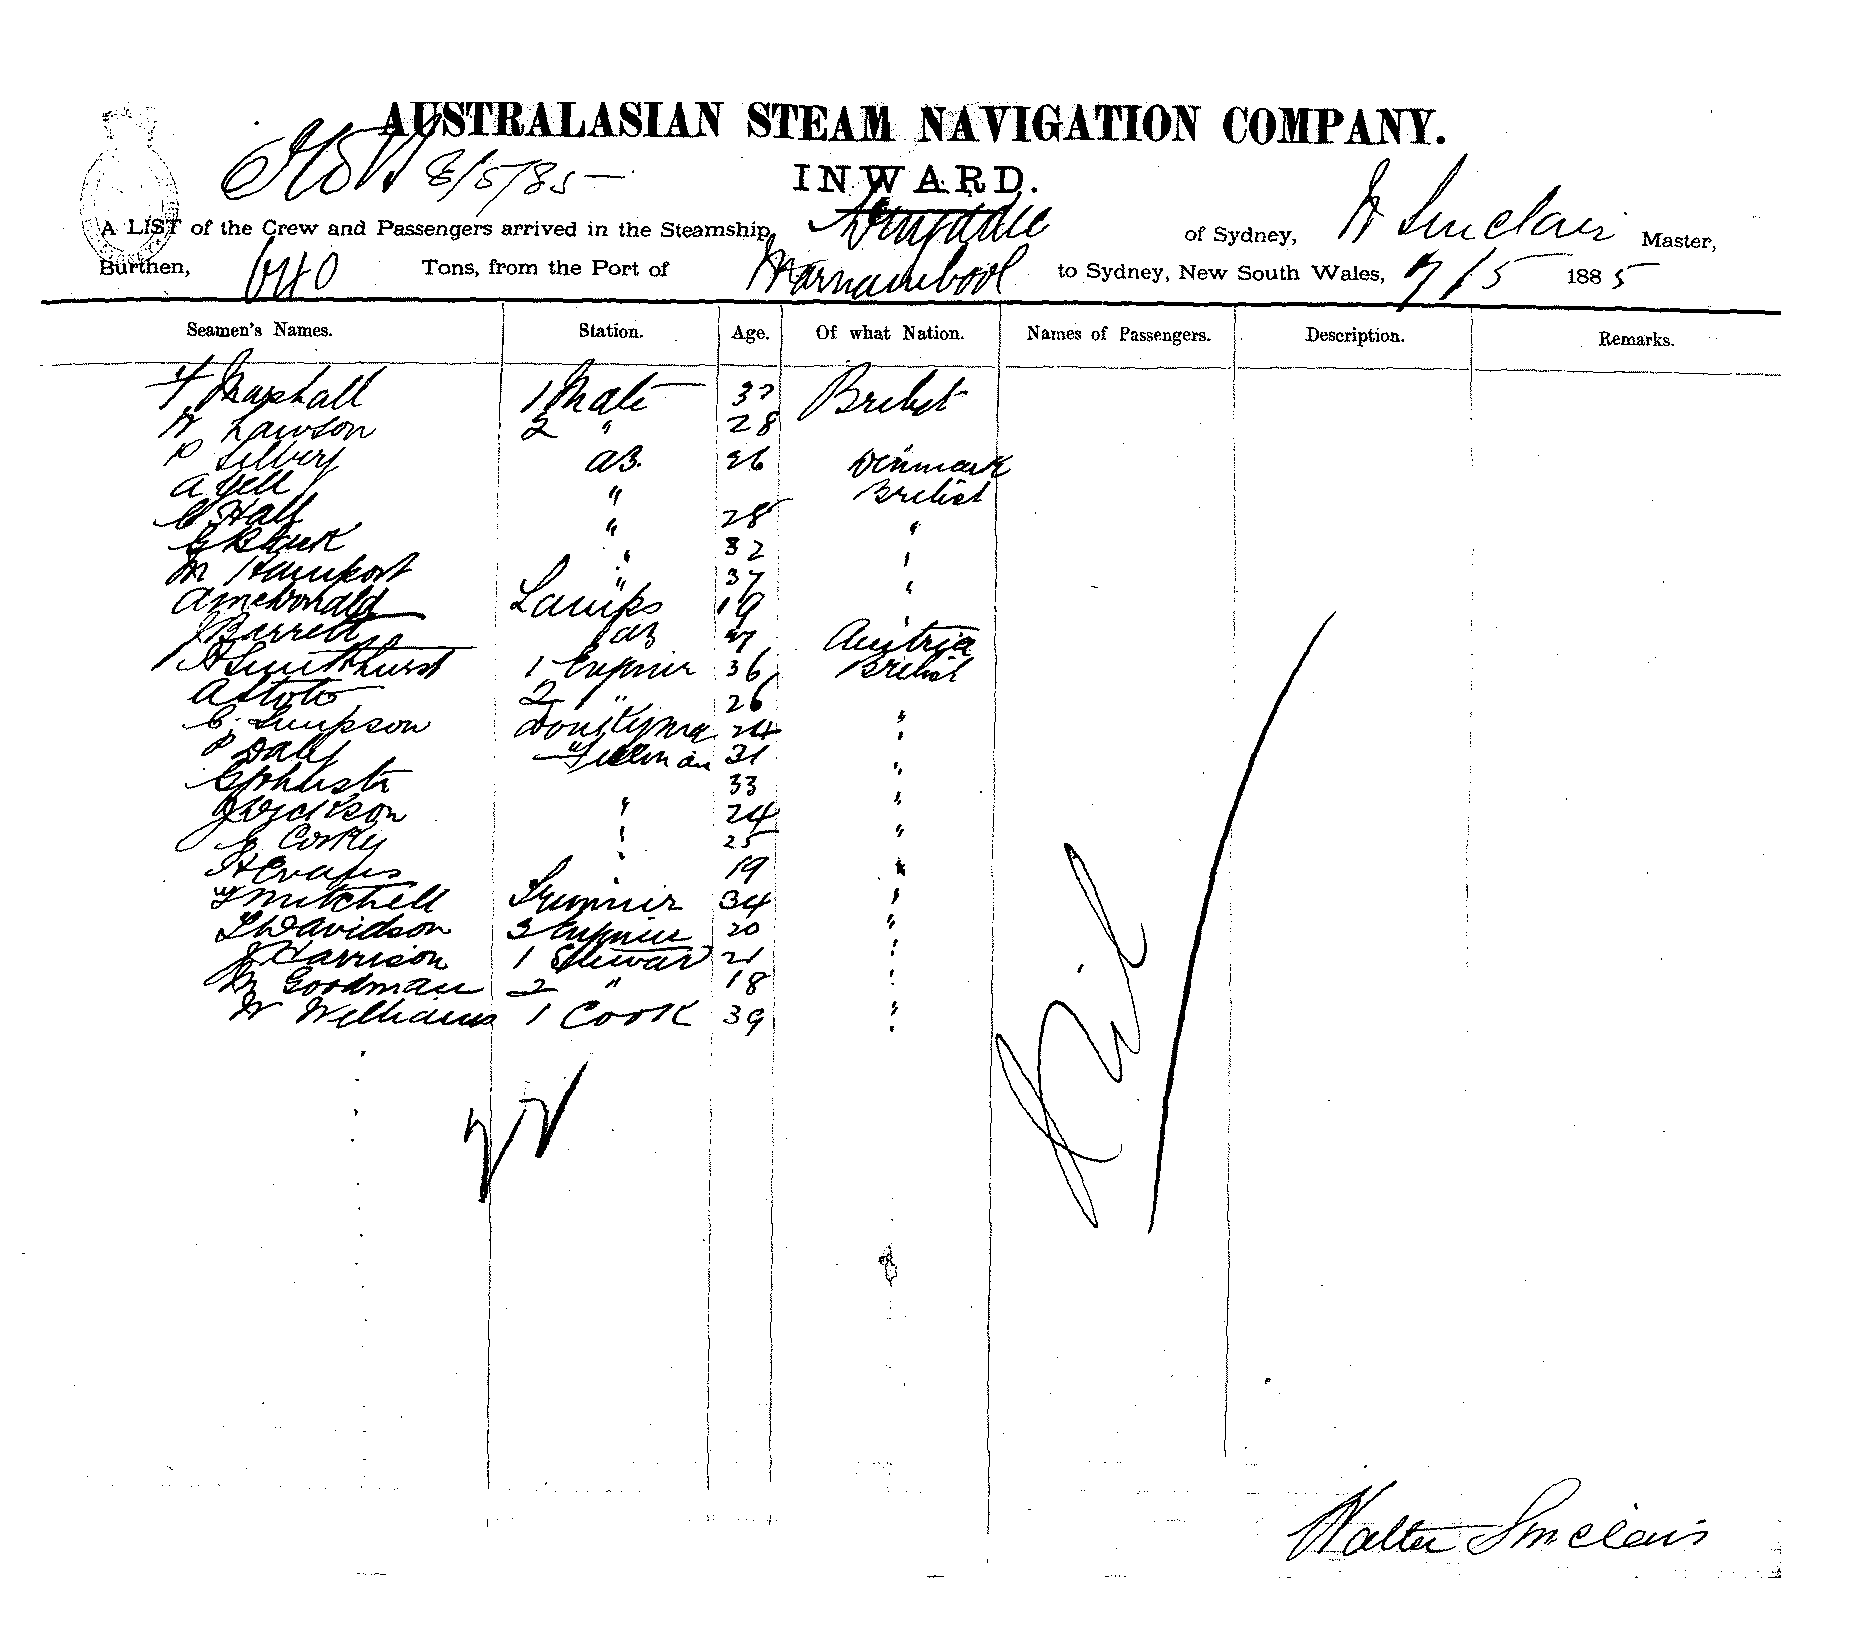 AUSTRALASIAN STEAM NAVIGATION COMPANY.
8/5/85
INWARD.
A LIST of the Crew and Passengers arrived in the Steamship of Sydney, W Sinclair Master,
Burthen, 640 Tons, from the Port of Warnambool to Sydney, New South Wales, 7/5 1885
Seamen's Names. Station. Age. Of what Nation. Names of Passengers. Description. Remarks.
F Marshall 1 Mate British
W Lawson 2 " 28
P AB. 26 Denmark
A Yell " British
C Hall " 28 "
G Black " 32 "
M " 37 "
A McDonald Lamps 19
J Barrett AB Austria
H Smithhurst 1 Engineer 36 British
A 2 " 26
C. Simpson Donkyman 24 "
P Daly Fireman 31 "
G 33 "
J Dickson " 24 "
G Corky " 25 "
H Evans " 19 "
F Mitchell Trimmer 34 "
T Davidson 3 Engineer 20 "
J Harrison 1 Steward 21 "
M Goodman 2 " 18 "
W Williams 1 Cook 39 "
Nil
22
Walter Sinclair